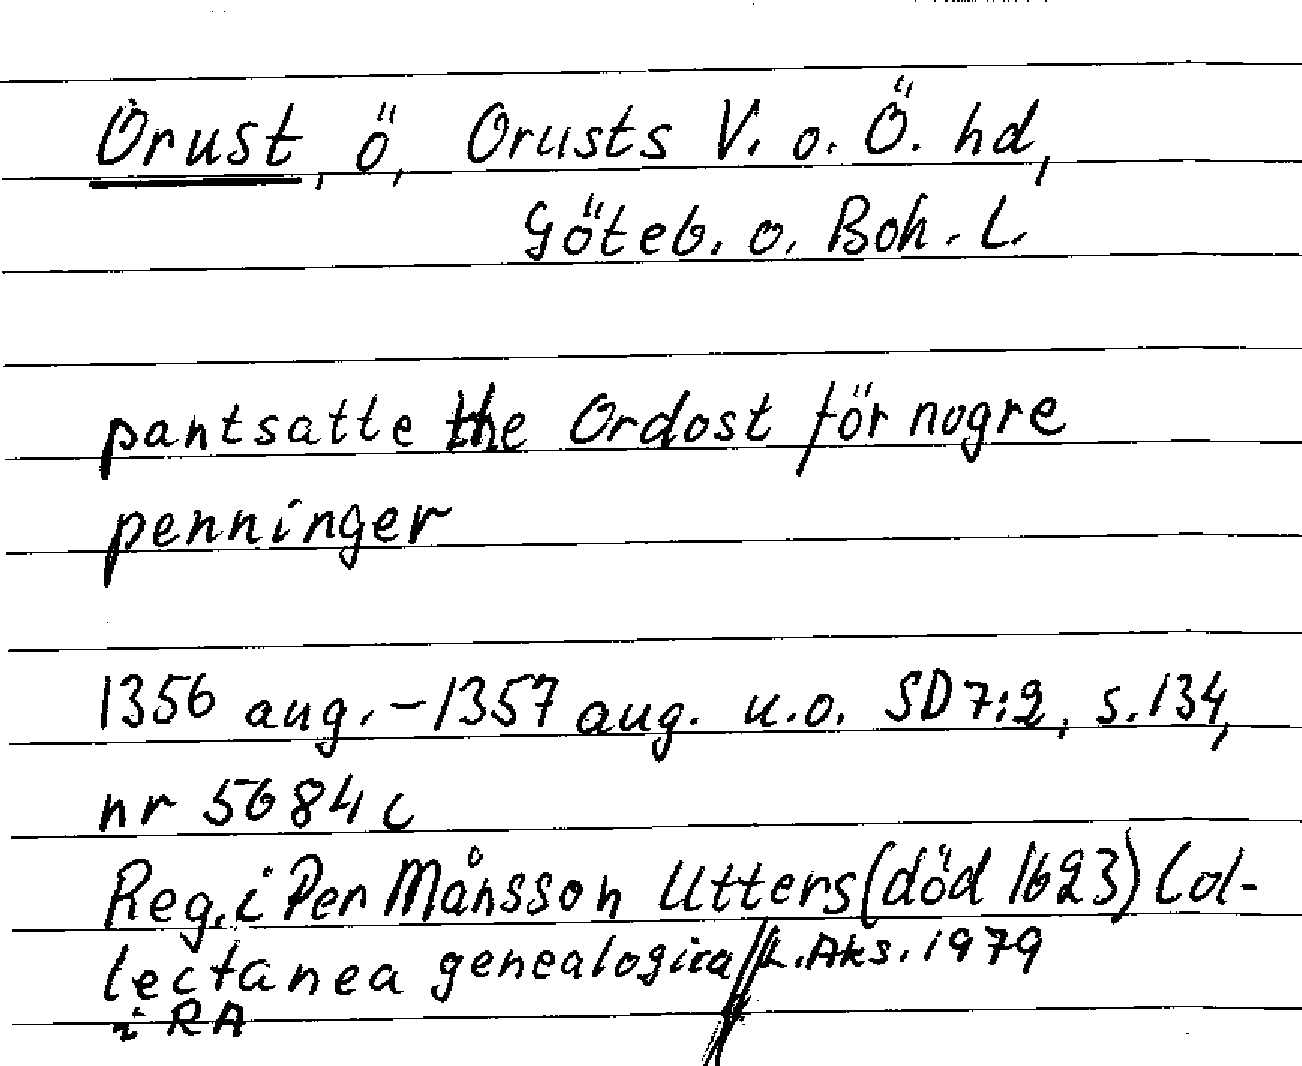 Orust, ö, Orusts V. o. Ö. hd,
Göteb. o. Boh. L.
pantsatte the Ordost för nogre
penninger
1356 aug. - 1357 aug. u.o. SD 7:2, s. 134,
nr 5684 c
Reg. i Per Månsson Utters (död 1623) Col-
lectanea genealogica // L. Aks. 1979
i RA